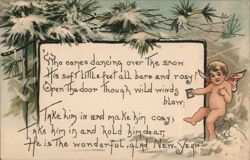 Who comes dancing over the snow
His soft little feet all bare and rosy?
Open the door though wild winds
blow,
Take him in and make him cosy;
Take him in and hold him dear,
He is the wonderful, glad New Year